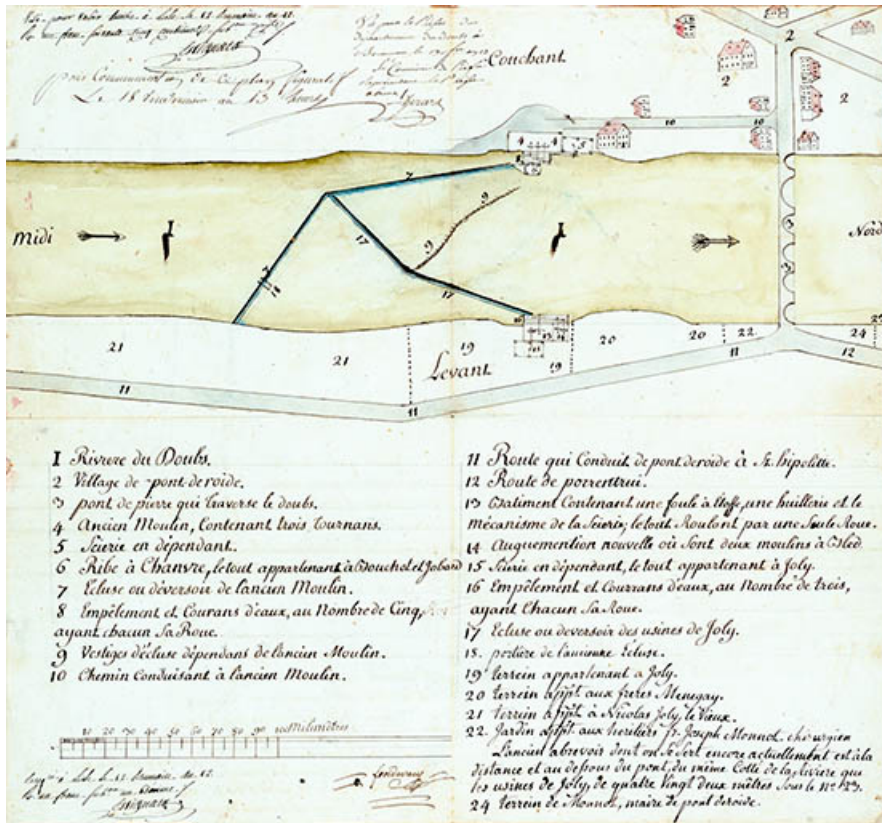 pour
de ce plan figuratif
Le 18
an 13
Couchant
2
2
2
10
10
4
4
5
7
9
9
midi
I
I
Nord
17
18
17
3
3
21
21
19
19
20
20
22
24
Levant
11
11
11
12
I Riviere du Doubs.
2 Village de pont de roide.
3 pont de pierre qui traverse le doubs.
4 Ancien Moulin, Contenant trois tournans.
5 Scierie en dépendant.
6 Ribe à Chanvre, le tout appartenant à Bouchot et Jobard
7 Ecluse ou déversoir de lancien Moulin.
8 Empêlement et Courans d'eaux, au Nombre de Cinq,
ayant chacun Sa Roue.
9 Vestiges d'écluse dépendans de lancien Moulin.
10 Chemin Conduisant à lancien Moulin.
11 Route qui Conduit de pont de roide à St. hipolitte.
12 Route de porrentrui.
13 Batiment Contenant une foule à Etoffe, une huillerie et le
mécanisme de la Scierie; le tout Roulant par une Seule Roue.
14 Auguemention nouvelle où Sont deux moulins à Bled.
15 Scierie en dépendant, le tout appartenant à Joly.
16 Empêlement et Courrans d'eaux, au Nombre de trois,
ayant Chacun Sa Roue.
17 Ecluse ou deversoir des usines de Joly.
18. portiere de l'ancienne Ecluse.
19 terrein appartenant a Joly.
20 terrein appt. aux freres Menegay.
21 terrein appt. à Nicolas Joly, le Vieux.
22 Jardin appt. aux heritiers fr. Joseph Monnot, chirurgien
L'ancien abrevoir dont on se sert encore actuellement est à la
distance et au dessous du pont, du même Cotté de la Rivire que
les usines de Joly, de quatre Vingt deux mêtres Sous le No. 23.
24 terrein de Monnot, maire de pont de roide.
10 20 30 40 50 60 70 80 90 100 Milimètres